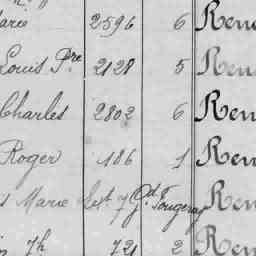 arie 2596 6 Ren
Louis Pre 2128 5 Ren
Charles 2802 6 Ren
Roger 186 1 Ren
Marie Ren
7h 721 2 Ren